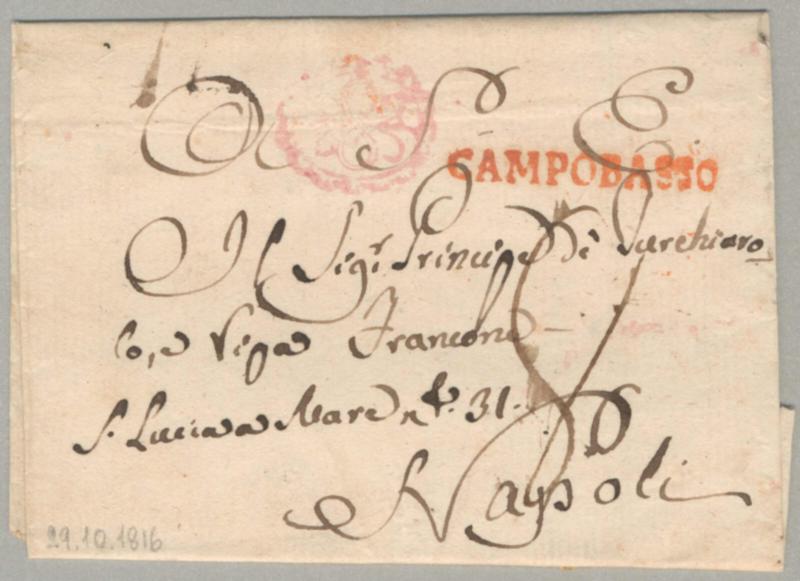 A S. E.
CAMPOBASSO
Il Sig.r Principe Di Turchiaro
lo, e Ripa Francone
S. Lucia a Mare n.o 31.
Napoli
29.10.1816